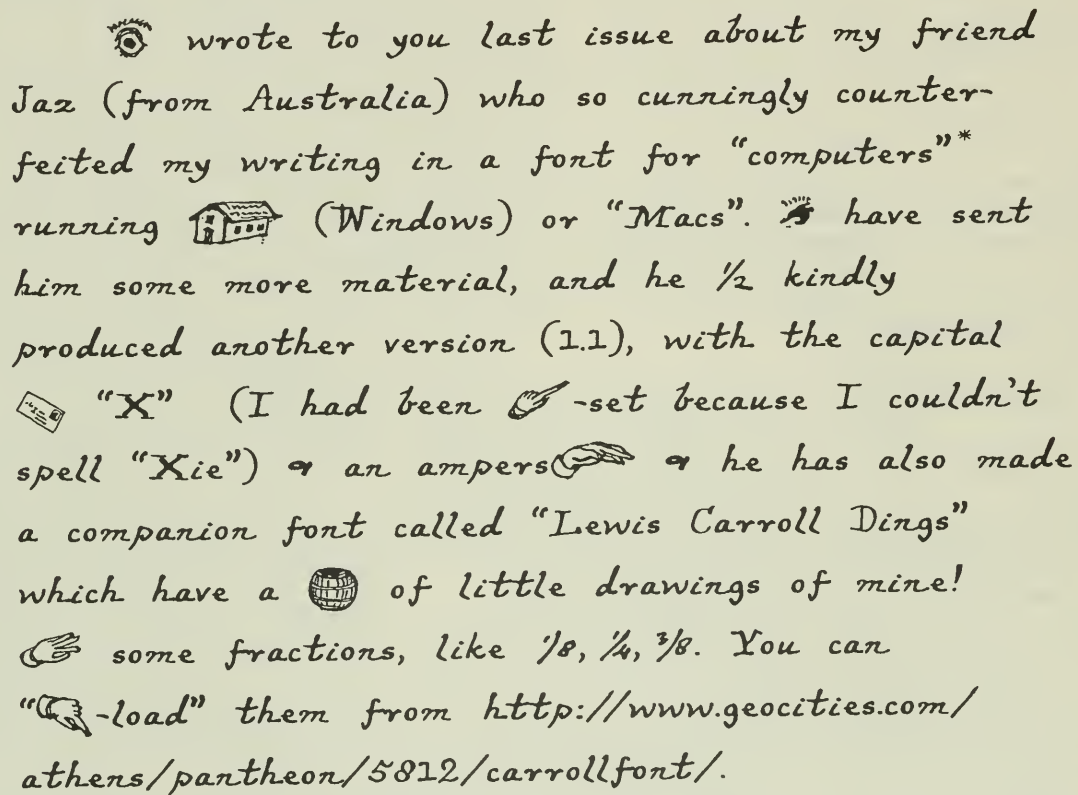 wrote to you last issue about my friend
Jaz (from Australia) who so cunningly counter-
feited my writing in a font for "computers"*
running (Windows) or "Macs". have sent
him some more material, and he ½ kindly
produced another version (1.1), with the capital
"X" (I had been -set because I couldn't
spell "Xie") & an ampers & he has also made
a companion font called "Lewis Carroll Dings"
which have a of little drawings of mine!
some fractions, like 1/8, 1/4, 3/8. You can
"-load" them from http://www.geocities.com/
athens/pantheon/5812/carrollfont/.